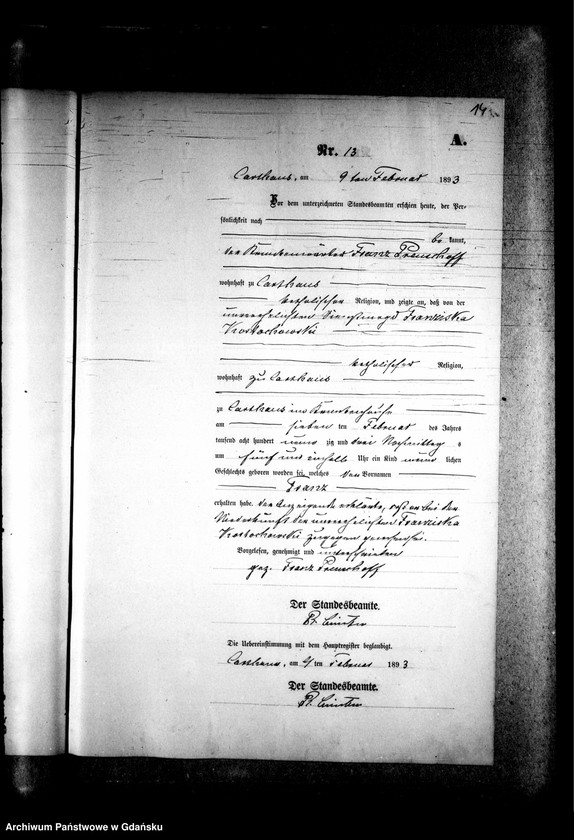 14
A.
Nr. 13
Carthaus, am 9 ten Februar 1893
Vor dem unterzeichneten Standesbeamten erschien heute, der Per-
sönlichkeit nach
be kannt,
der Krankenwärter Franz
wohnhaft zu Carthaus
katholischer Religion, und zeigte an, daß von der
unverehelichten Dienstmagd Franziska
katholischer Religion,
wohnhaft zu Carthaus
zu Carthaus im Krankenhause
am sieben ten Februar des Jahres
tausend acht hundert neun zig und drei Nachmittag s
um fünf und einhalb Uhr ein Kind männ lichen
Geschlechts geboren worden sei, welches den Vornamen
Franz
erhalten habe. Der Anzeigende erklärte, daß er bei der
Niederkunft der unverehelichten Franziska
zugegen gewesen sei.
Vorgelesen, genehmigt und unterschrieben
gez. Franz
Der Standesbeamte.
Die Uebereinstimmung mit dem Hauptregister beglaubigt.
Carthaus, am 9 ten Februar 1893
Der Standesbeamte.
Archiwum Państwowe w Gdańsku